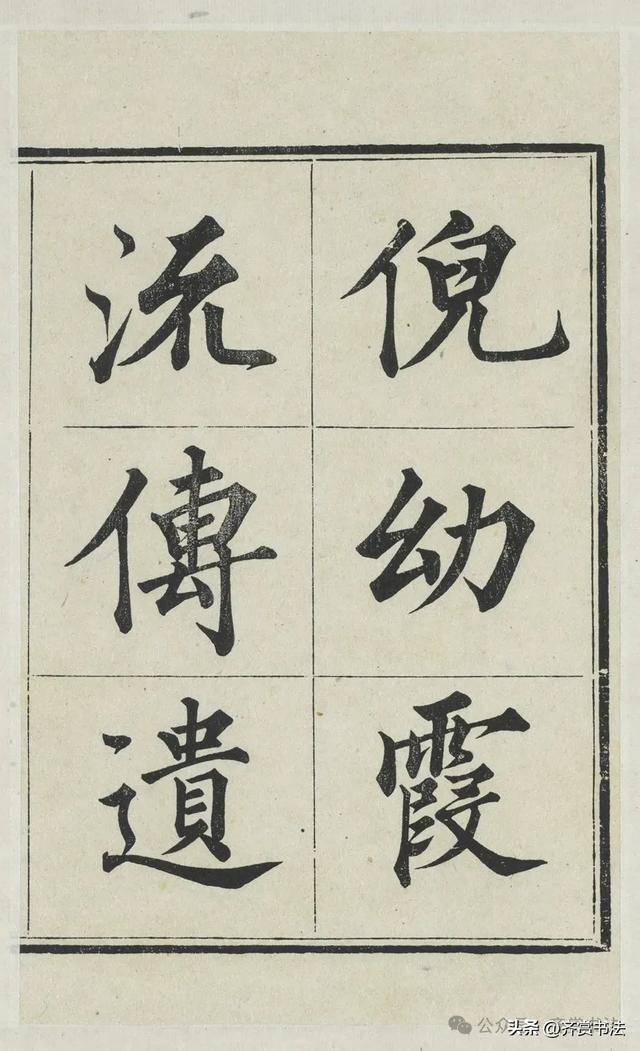 倪幼霞
流傳遺
公众号
头条 @齐赏书法